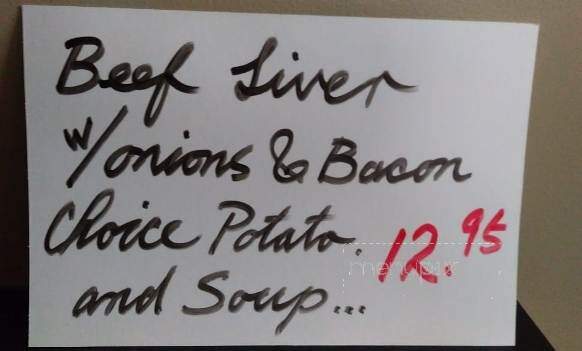 Beef Liver
w/onions & Bacon
Choice Potato. 12.95
and Soup...